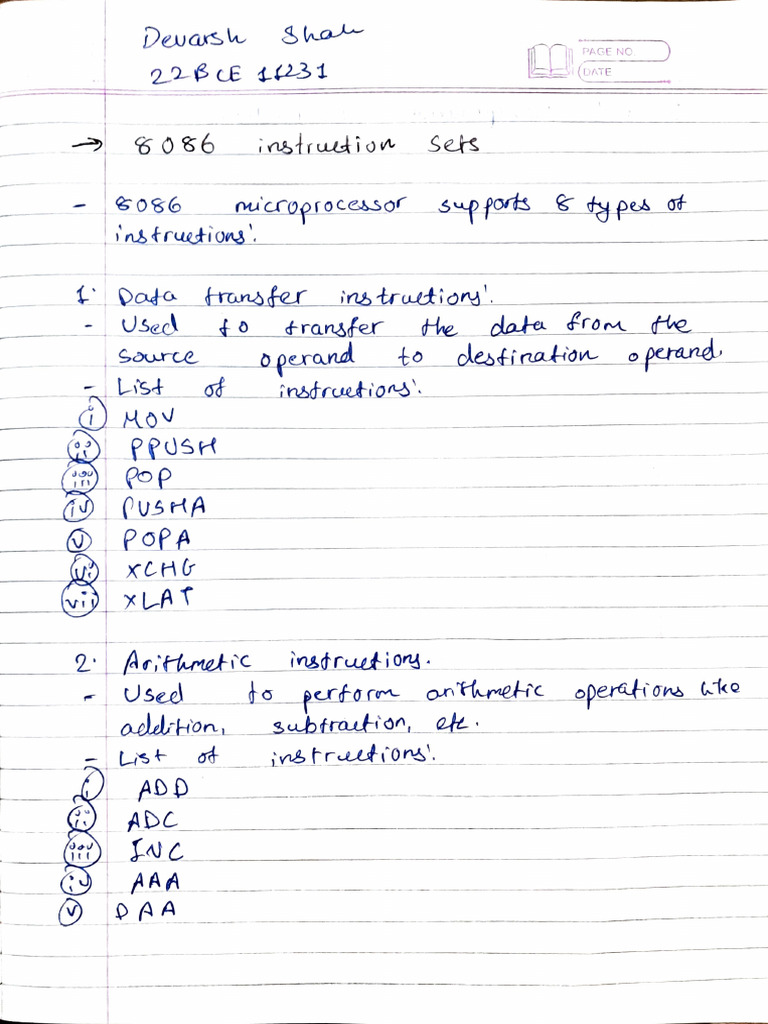 Devarsh Shah
22BCE11231
PAGE NO.
DATE
→ 8086 instruction sets
- 8086 microprocessor supports 8 types of
instructions:
1. Data transfer instructions:
- Used to transfer the data from the
source operand to destination operand.
- List of instructions:
i MOV
ii PPUSH
iii POP
iv PUSHA
v POPA
vi XCHG
vii XLAT
2. Arithmetic instructions.
- Used to perform arithmetic operations like
addition, subtraction, etc.
- List of instructions:
i ADD
ii ADC
iii INC
iv AAA
v DAA